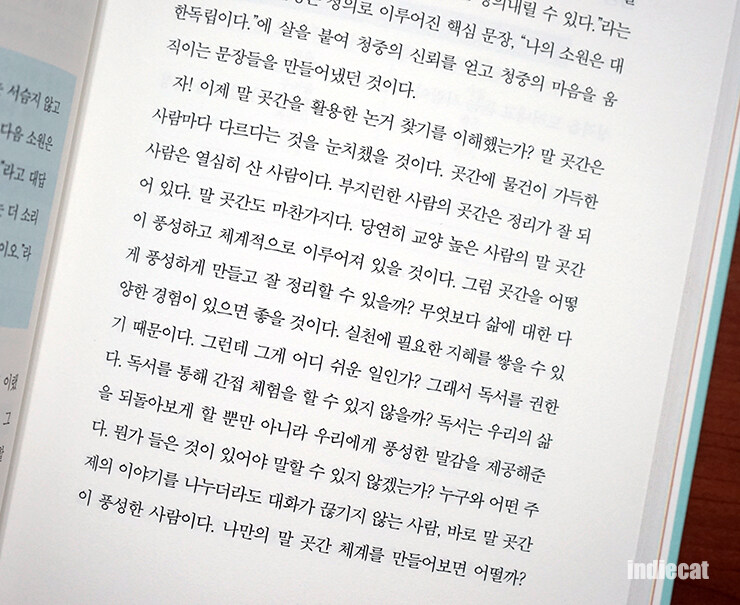 서슴지 않고
다음 소원은
"라고 대답
더 소리
이오.'라
이랬
그
정의로 이루어진 핵심 문장, "나의 소원은 대
한독립이다."에 살을 붙여 청중의 신뢰를 얻고 청중의 마음을 움
직이는 문장들을 만들어냈던 것이다.
자! 이제 말 곳간을 활용한 논거 찾기를 이해했는가? 말 곳간은
사람마다 다르다는 것을 눈치챘을 것이다. 곳간에 물건이 가득한
사람은 열심히 산 사람이다. 부지런한 사람의 곳간은 정리가 잘 되
어 있다. 말 곳간도 마찬가지다. 당연히 교양 높은 사람의 말 곳간
이 풍성하고 체계적으로 이루어져 있을 것이다. 그럼 곳간을 어떻
게 풍성하게 만들고 잘 정리할 수 있을까? 무엇보다 삶에 대한 다
양한 경험이 있으면 좋을 것이다. 실천에 필요한 지혜를 쌓을 수 있
기 때문이다. 그런데 그게 어디 쉬운 일인가? 그래서 독서를 권한
다. 독서를 통해 간접 체험을 할 수 있지 않을까? 독서는 우리의 삶
을 되돌아보게 할 뿐만 아니라 우리에게 풍성한 말감을 제공해준
다. 뭔가 들은 것이 있어야 말할 수 있지 않겠는가? 누구와 어떤 주
제의 이야기를 나누더라도 대화가 끊기지 않는 사람, 바로 말 곳간
이 풍성한 사람이다. 나만의 말 곳간 체계를 만들어보면 어떨까?
indiecat